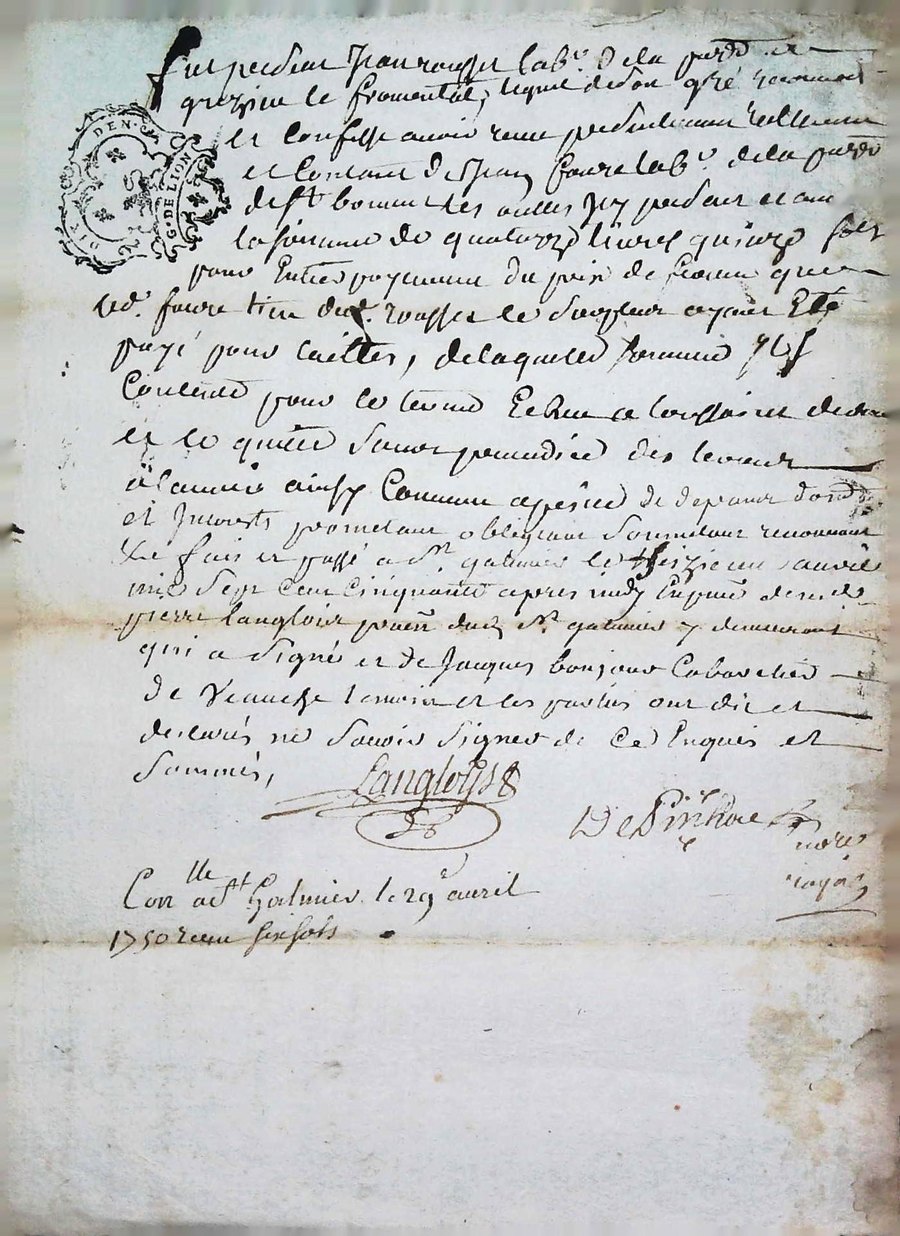 Fut présent Jean rousset lab.r de la parr.e de
grezieu le fromental, lequel de son gré reconnoit
et confesse avoir reçu présentement réellement
et comtant de Jean faure lab.r de la parr.e
de St bonnet les oulles icy présent et acc.
la somme de quatorze livres quinze sols
pour Entier payement du prix de ferme que
led. faure tien dud. rousset le surplus ayant Eté
payé pour tailles, de laquelle somme il est
Content pour le terme Echue a toussaint der
et le quitte sans prejudice des termes
à lavenir ainsy Comme a peine de depans dom
et Interests prometant obligeant soumetant renonceant
fait et passé a St galmier le seizieme avril
mil sept cent cinquante apres midy En presence de
pierre langlois pratn dud. St galmier y demeurant
qui a signé et de Jacques bonjour Cabaretier
de Veauche temoin et les parties ont dit et
declarés ne savoir signer de ce Enquis et
sommés,
Langloys
not.re
royal
DIX DEN. G. DE LION
Con.lle a St Galmier le 29 avril
1750 reçu six sols